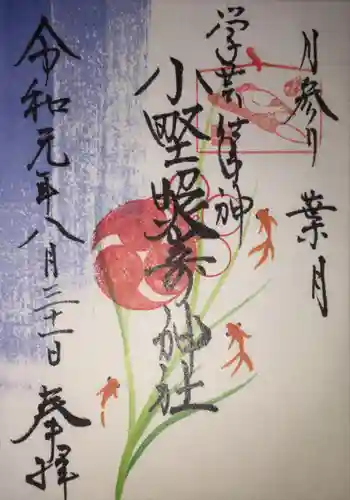 月参り 葉月
学芸の守り神
小野照崎神社
令和元年八月三十一日 奉拝